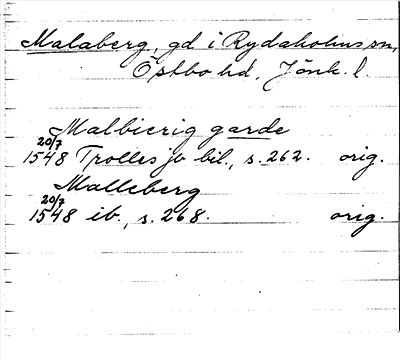 Malaberg, gd i Rydaholms sn,
Östbo hd, Jönk. l.
Malbierig garde
20/7 1548 Trolles jb bil., s. 262. orig.
Malleberg
20/7 1548 ib., s. 268. orig.